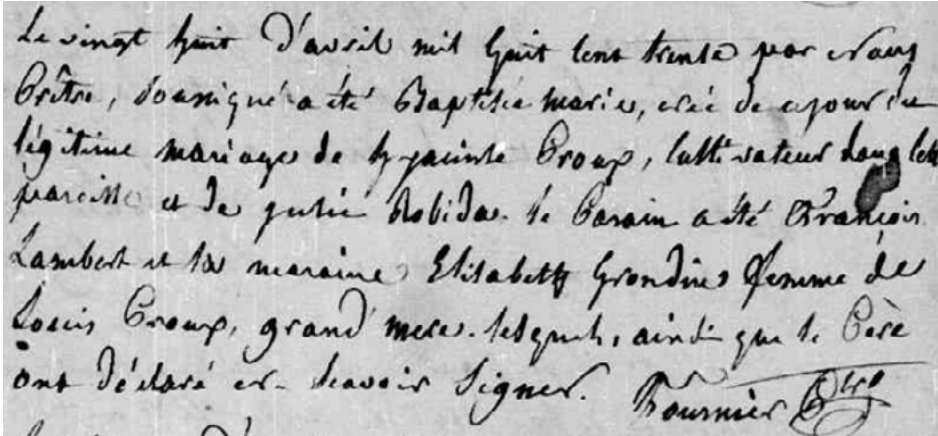 Le vingt huit d'avril mil huit cent trente par nous
Prêtre, soussigné a été Baptisée marie, née de ce jour du
légitime mariage de hyacinte Proux, Cultivateur dans cette
paroisse et de julie Robida. le Parain a été François
Lambert et la maraine Elisabeth Grondin femme de
Louis Proux, grand mere. lesquels, ainsi que le Père
ont déclaré ne savoir signer. Fournier Ptre